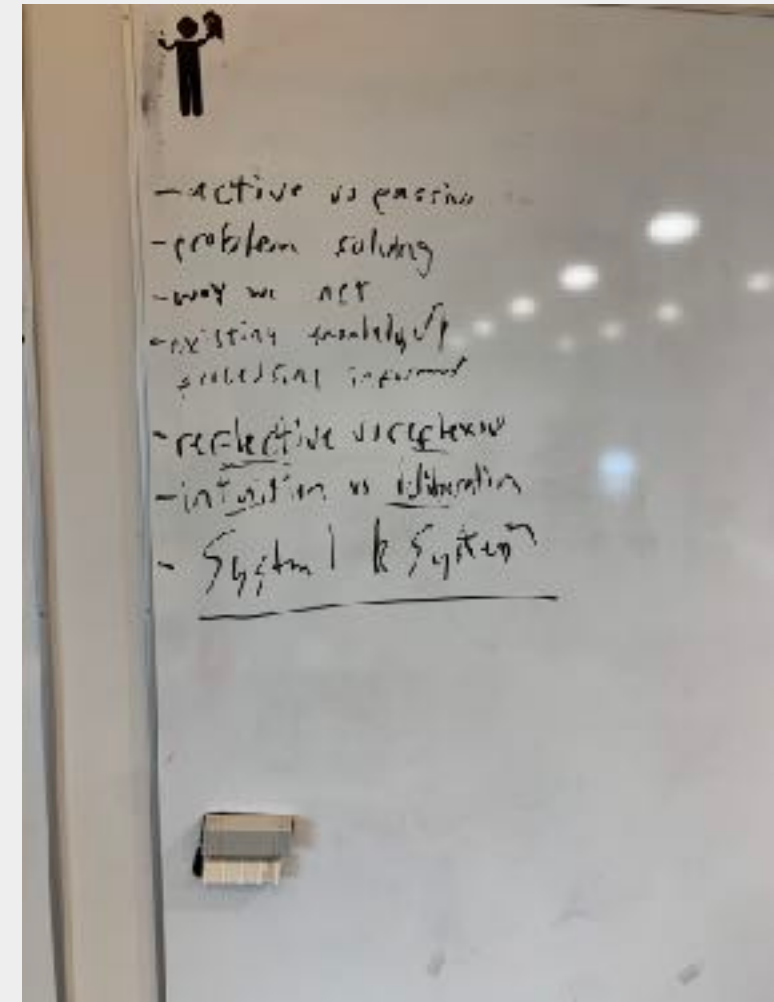 - active vs passive
- problem solving
- way we act
- existing knowledge
processing
- reflective vs reflexive
- intuition vs deliberation
- System 1 & System 2